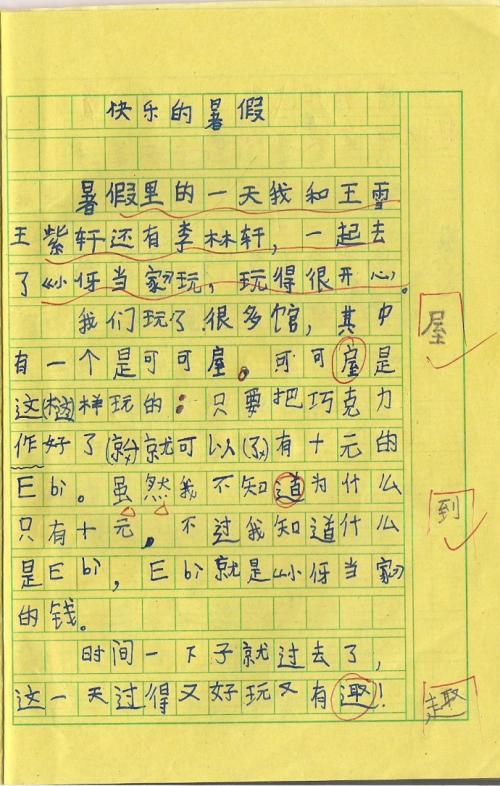 快乐的暑假
暑假里的一天我和王雪
王紫轩还有李林轩，一起去
了《小伢当家》玩，玩得很开心。
我们玩了很多馆，其中
有一个是可可屋。可可屋是
这样玩的：只要把巧克力
作好了就可以有十元的
E bi。虽然我不知道为什么
只有十元，不过我知道什么
是E bi，E bi就是《小伢当家》
的钱。
时间一下子就过去了，
这一天过得又好玩又有趣！
屋
到
趣